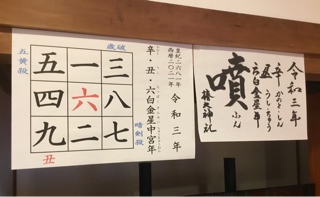 皇紀二六八一年
西暦二〇二一年
令和三年
辛・丑・六白金星中宮年
五黄殺
歳破
五一三
四六八
九二七
暗剣殺
丑
令和三年
辛 かのと しん
丑 うし・ちゅう
六白金星年
噴
ふん
神社